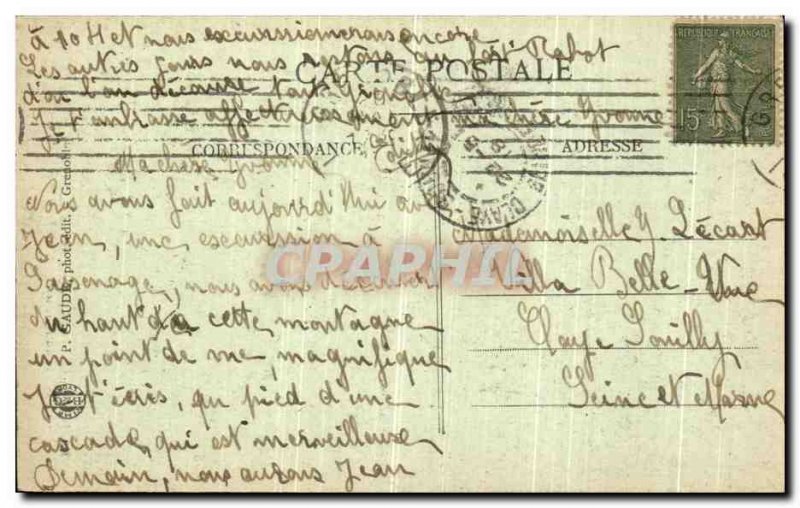 à 10 H et nous excurssionnerons encore
Les autres jours nous restons au fort Rabot
d'où l'on découvre tout Grenoble
Je t'embrasse affectueusement ma chère Yvonne
CARTE POSTALE
CORRESPONDANCE
ADRESSE
REPUBLIQUE FRANÇAISE
15c
Ma chère Yvonne
Nous avons fait aujourd'hui av
Jean, une excurssion à
Sassenage, nous avons découvert
du haut de cette montagne
un point de vue, magnifique
Je t'écris, au pied d'une
cascade, qui est merveilleuse
Demain, nous aurons Jean
Mademoiselle Y. Lécart
Villa Belle-Vue
Claye Souilly
Seine et Marne
CLAYE-SOUILLY
P. GAUDE, phot. édit. Grenoble
CPRAPHIL